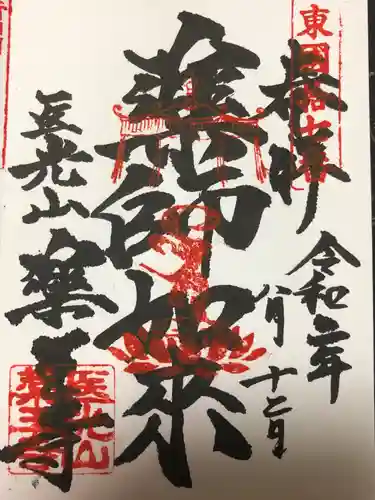 奉拝
令和二年
八月十二日
薬師如来
医光山
薬王寺
医光山
薬王寺